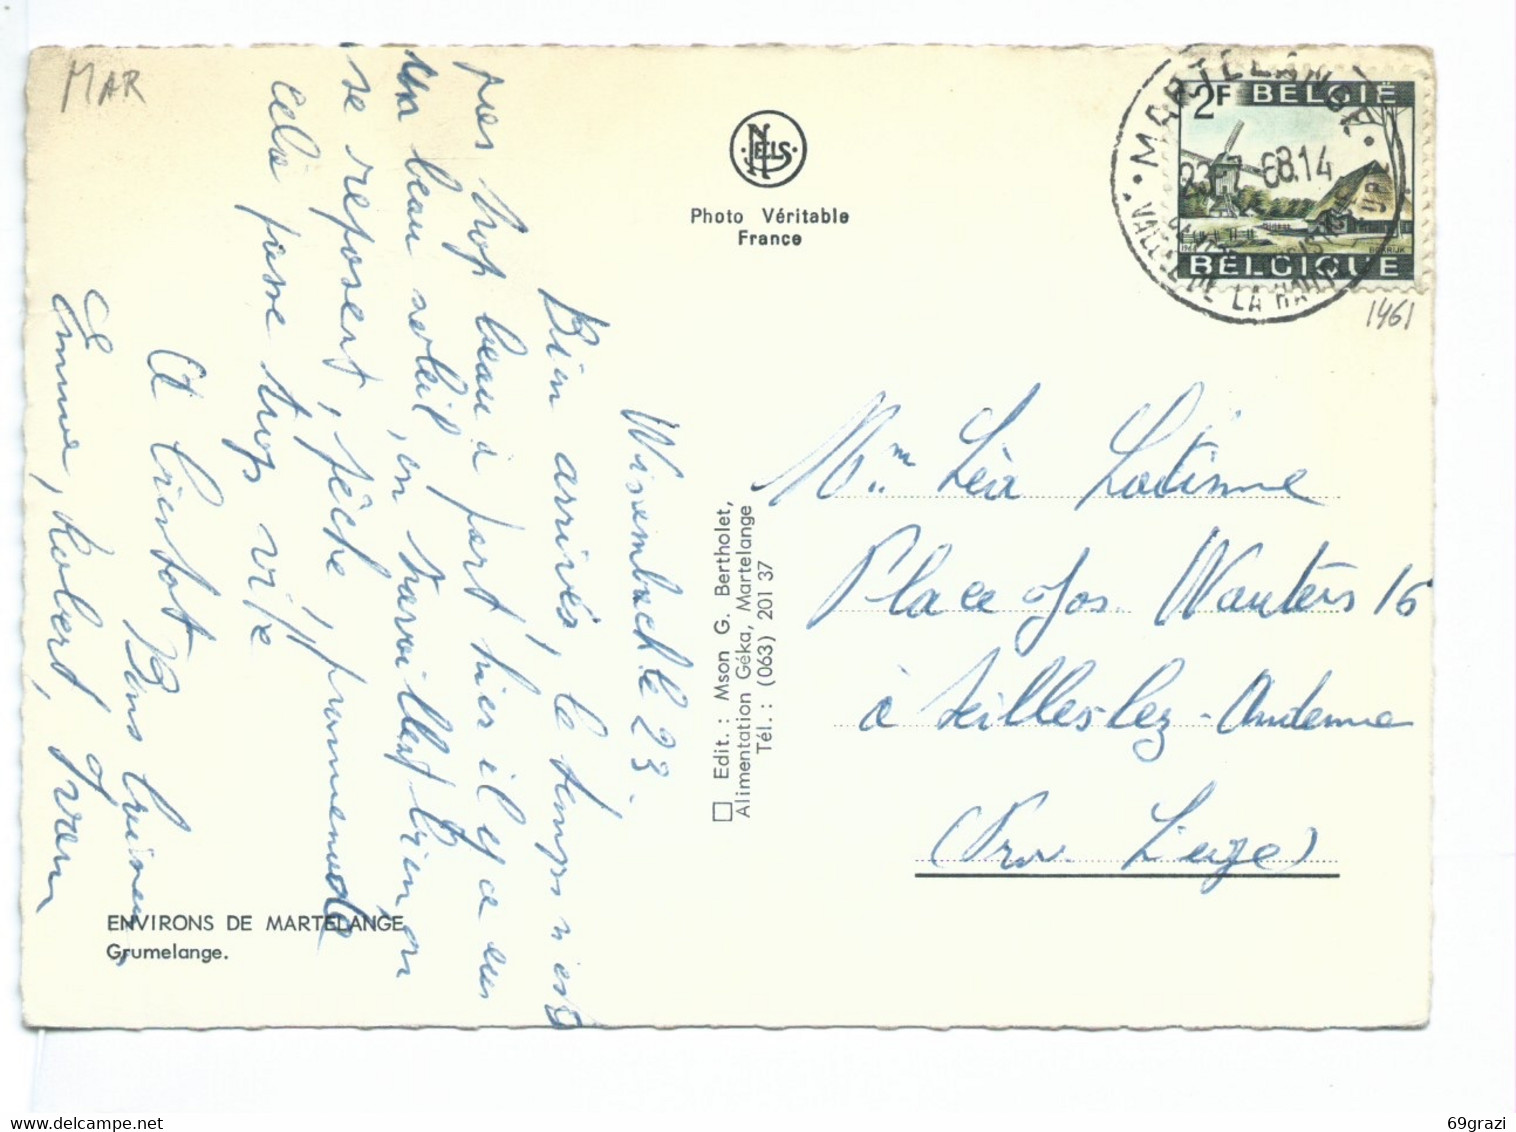 MAR
NELS
Photo Véritable
France
2F BELGIË
BELGIQUE
MARTELANGE
23-7-68.14
VALLEE DE LA HAUTE
1461
Wisembach le 23.
Bien arrivés, le temps n'est
pas trop beau à part hier il y a eu
un beau soleil, on travaille bien, on
se repose, pêche, promenade
cela passe trop vite
Et bientôt Bons baisers
Emma, Robert, Yvan
Edit. : Mson G. Bertholet,
Alimentation Géka, Martelange
Tél. : (063) 201 37
Mme Léa
Place Jos Wauters 16
à Seilles lez-Andenne
(Prov. Liege)
ENVIRONS DE MARTELANGE
Grumelange.
69grazi